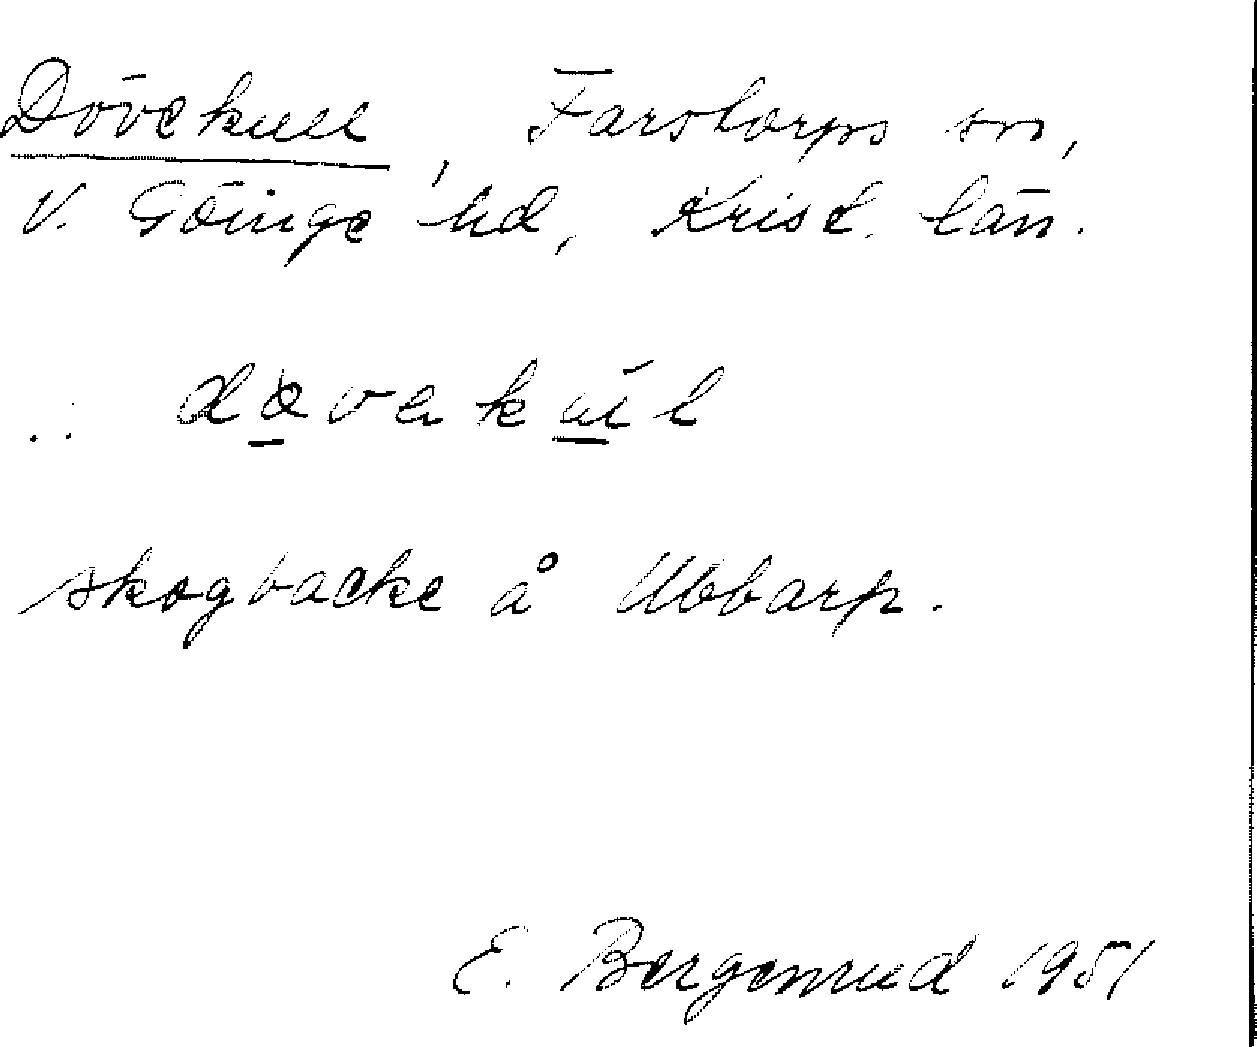 Dövekull, Farstorps sn,
V. Göinge hd, Krist. län.
skogbacke å Ubbarp.
E. Bergenrud 1951